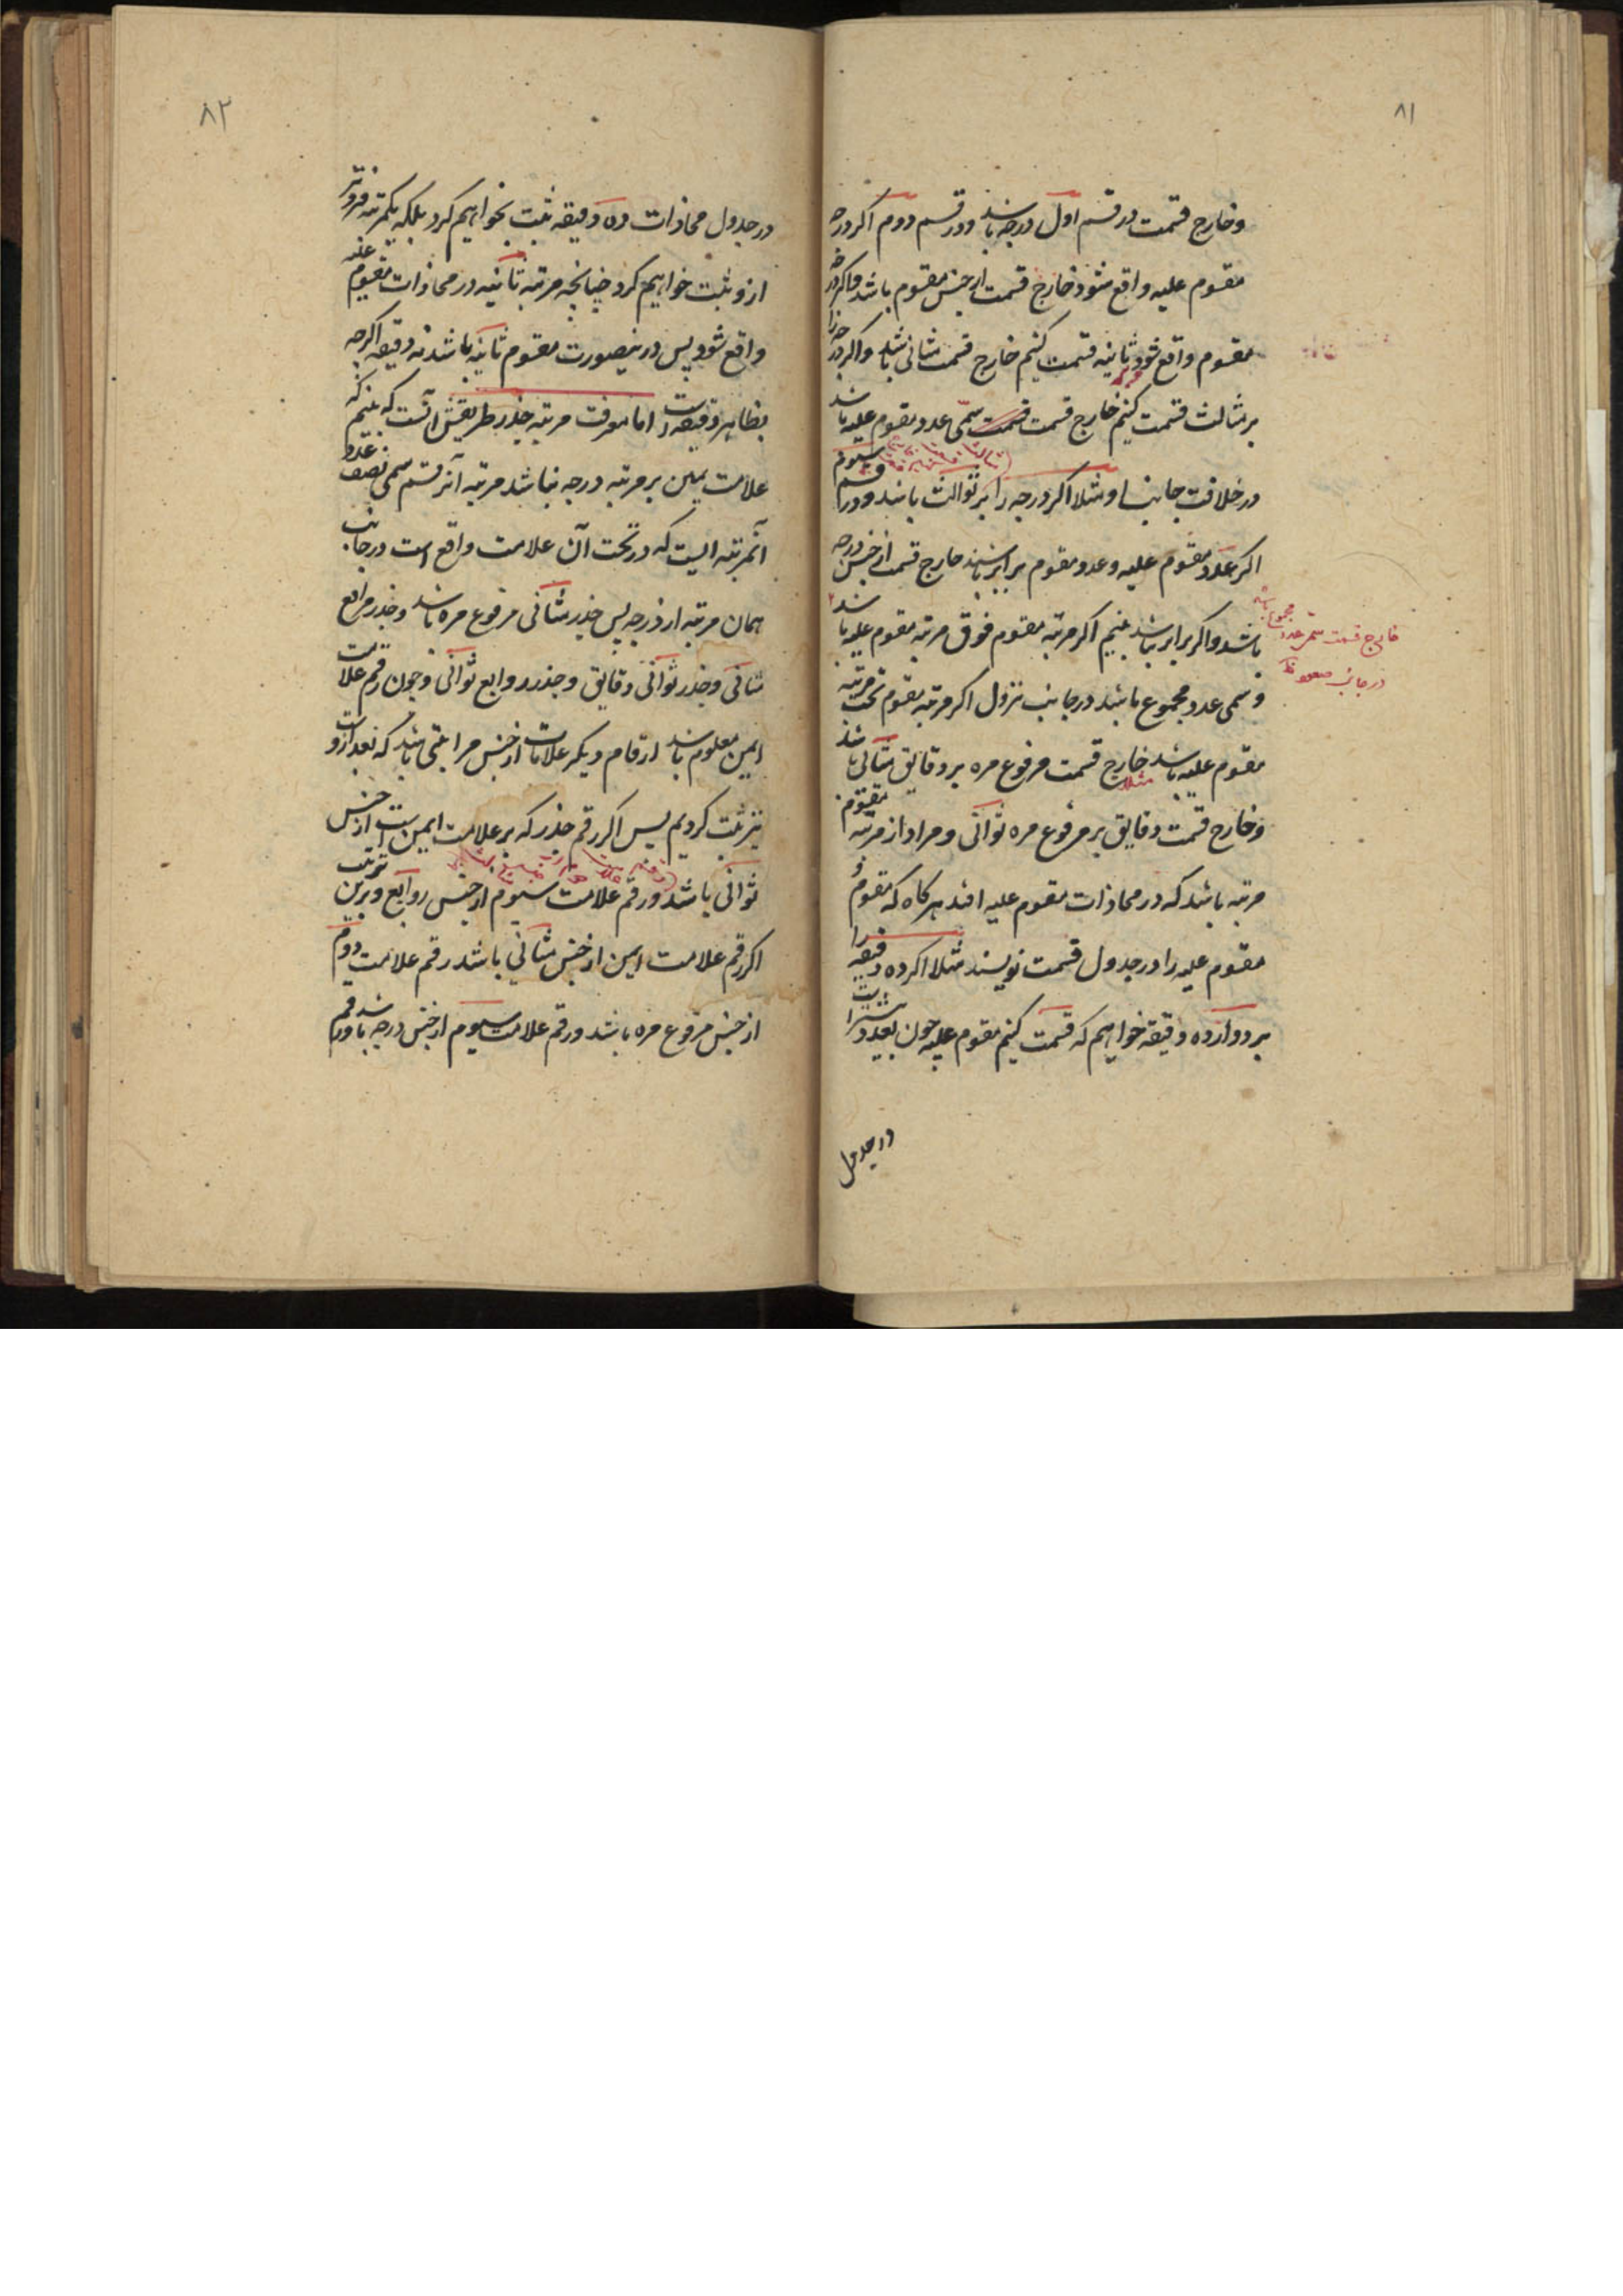 ۸۱
و خارج قسمت در قسم اول درجه باشد و در قسم دوم اگر درجه
مقسوم علیه واقع شود خارج قسمت از جنس مقسوم باشد و اگر درجه
مقسوم واقع شود ثانیه قسمت کنیم خارج قسمت مثانی باشد و اگر درجه را
بر مثالث قسمت کنیم خارج قسمت قسمت سمی عدد مقسوم علیه باشد
در خلافت جانب او مثلا اگر درجه را بر ثوالث باشد و در قسم سیوم
اگر عدد مقسوم علیه و عدد مقسوم برابر باشند خارج قسمت از جنس درجه
باشد و اگر برابر نباشد بینیم اگر مرتبه مقسوم فوق مرتبه مقسوم علیه باشد
خارج قسمت سمی عدد مجموع باشد
در جانب صعود
و سمی عدد مجموع باشد در جانب نزول اگر مرتبه مقسوم تحت مرتبه
مقسوم علیه باشد خارج قسمت مرفوع مره بر دقایق مثانی باشد
مثلا
و خارج قسمت دقایق بر مرفوع مره ثوانی و مراد از مرتبه مقسوم
مرتبه باشد که در محاذات مقسوم علیه افتد هرگاه که مقسوم و
مقسوم علیه را در جدول قسمت نویسند مثلا اگر ده دقیقه را
بر دوازده دقیقه خواهیم که قسمت کنیم مقسوم علیه چون بعدد بیشتر است
در جدول
۸۲
در جدول محاذات ده دقیقه ثبت نخواهیم کرد بلکه یکمرتبه فروتر
ازو ثبت خواهیم کرد چنانچه مرتبه ثانیه در محاذات مقسوم علیه
واقع شود پس درینصورت مقسوم ثانیه باشد نه دقیقه اگرچه
بظاهر دقیقه است اما معرفت مرتبه جذر طریقش آنست که بینیم که
علامت یمین بر مرتبه درجه نباشد مرتبه آنرقم سمی نصف عدد
آنمرتبه ایست که در تحت آن علامت واقع است در جانب
همان مرتبه از درجه پس جذر مثانی مرفوع مره باشد و جذر مرابع
مثانی و جذر ثوانی دقایق و جذر روابع ثوانی و چون رقم علامت
ایمن معلوم باشد ارقام دیگر علامات از جنس مراتبی باشد که بعد از او
نیز ثبت کردیم پس اگر رقم جذر که بر علامت ایمن است از جنس
ثوانی باشد و رقم علامت سیوم از جنس روابع و برین ترتیب
اگر رقم علامت ایمن از جنس مثانی باشد رقم علامت دوم
از جنس مرفوع مره باشد و رقم علامت سیوم از جنس درجه باشد و رقم